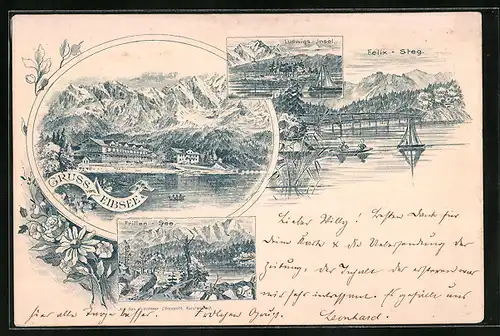 Ludwigs-Insel.
Felix - Steg.
GRUSS v. EIBSEE.
Frillen - See
Lieber Willy! Besten Dank für
Deine Karte & die Uebersendung der
Zeitung, der Inhalt der ersteren war
mir sehr interessant. Es gefällt uns
hier alle Tage besser. Gruss,
Leonhard.